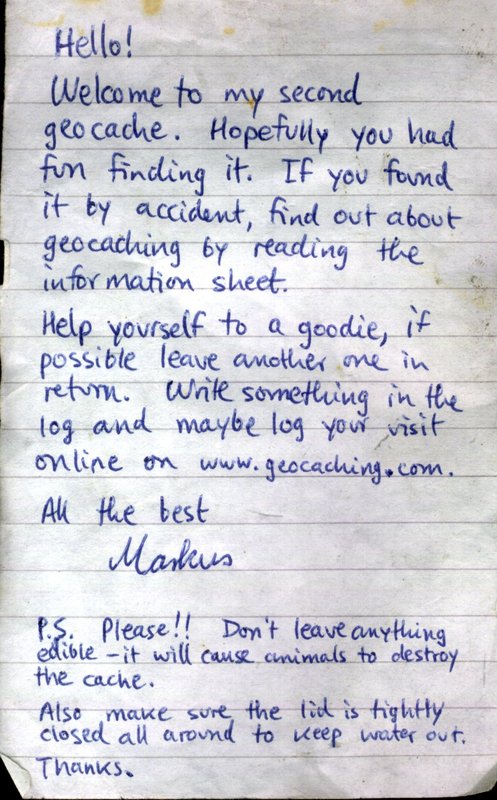 Hello!
Welcome to my second
geocache. Hopefully you had
fun finding it. If you found
it by accident, find out about
geocaching by reading the
information sheet.
Help yourself to a goodie, if
possible leave another one in
return. Write something in the
log and maybe log your visit
online on www.geocaching.com.
All the best
Markus
P.S. Please!! Don't leave anything
edible - it will cause animals to destroy
the cache.
Also make sure the lid is tightly
closed all around to keep water out.
Thanks.